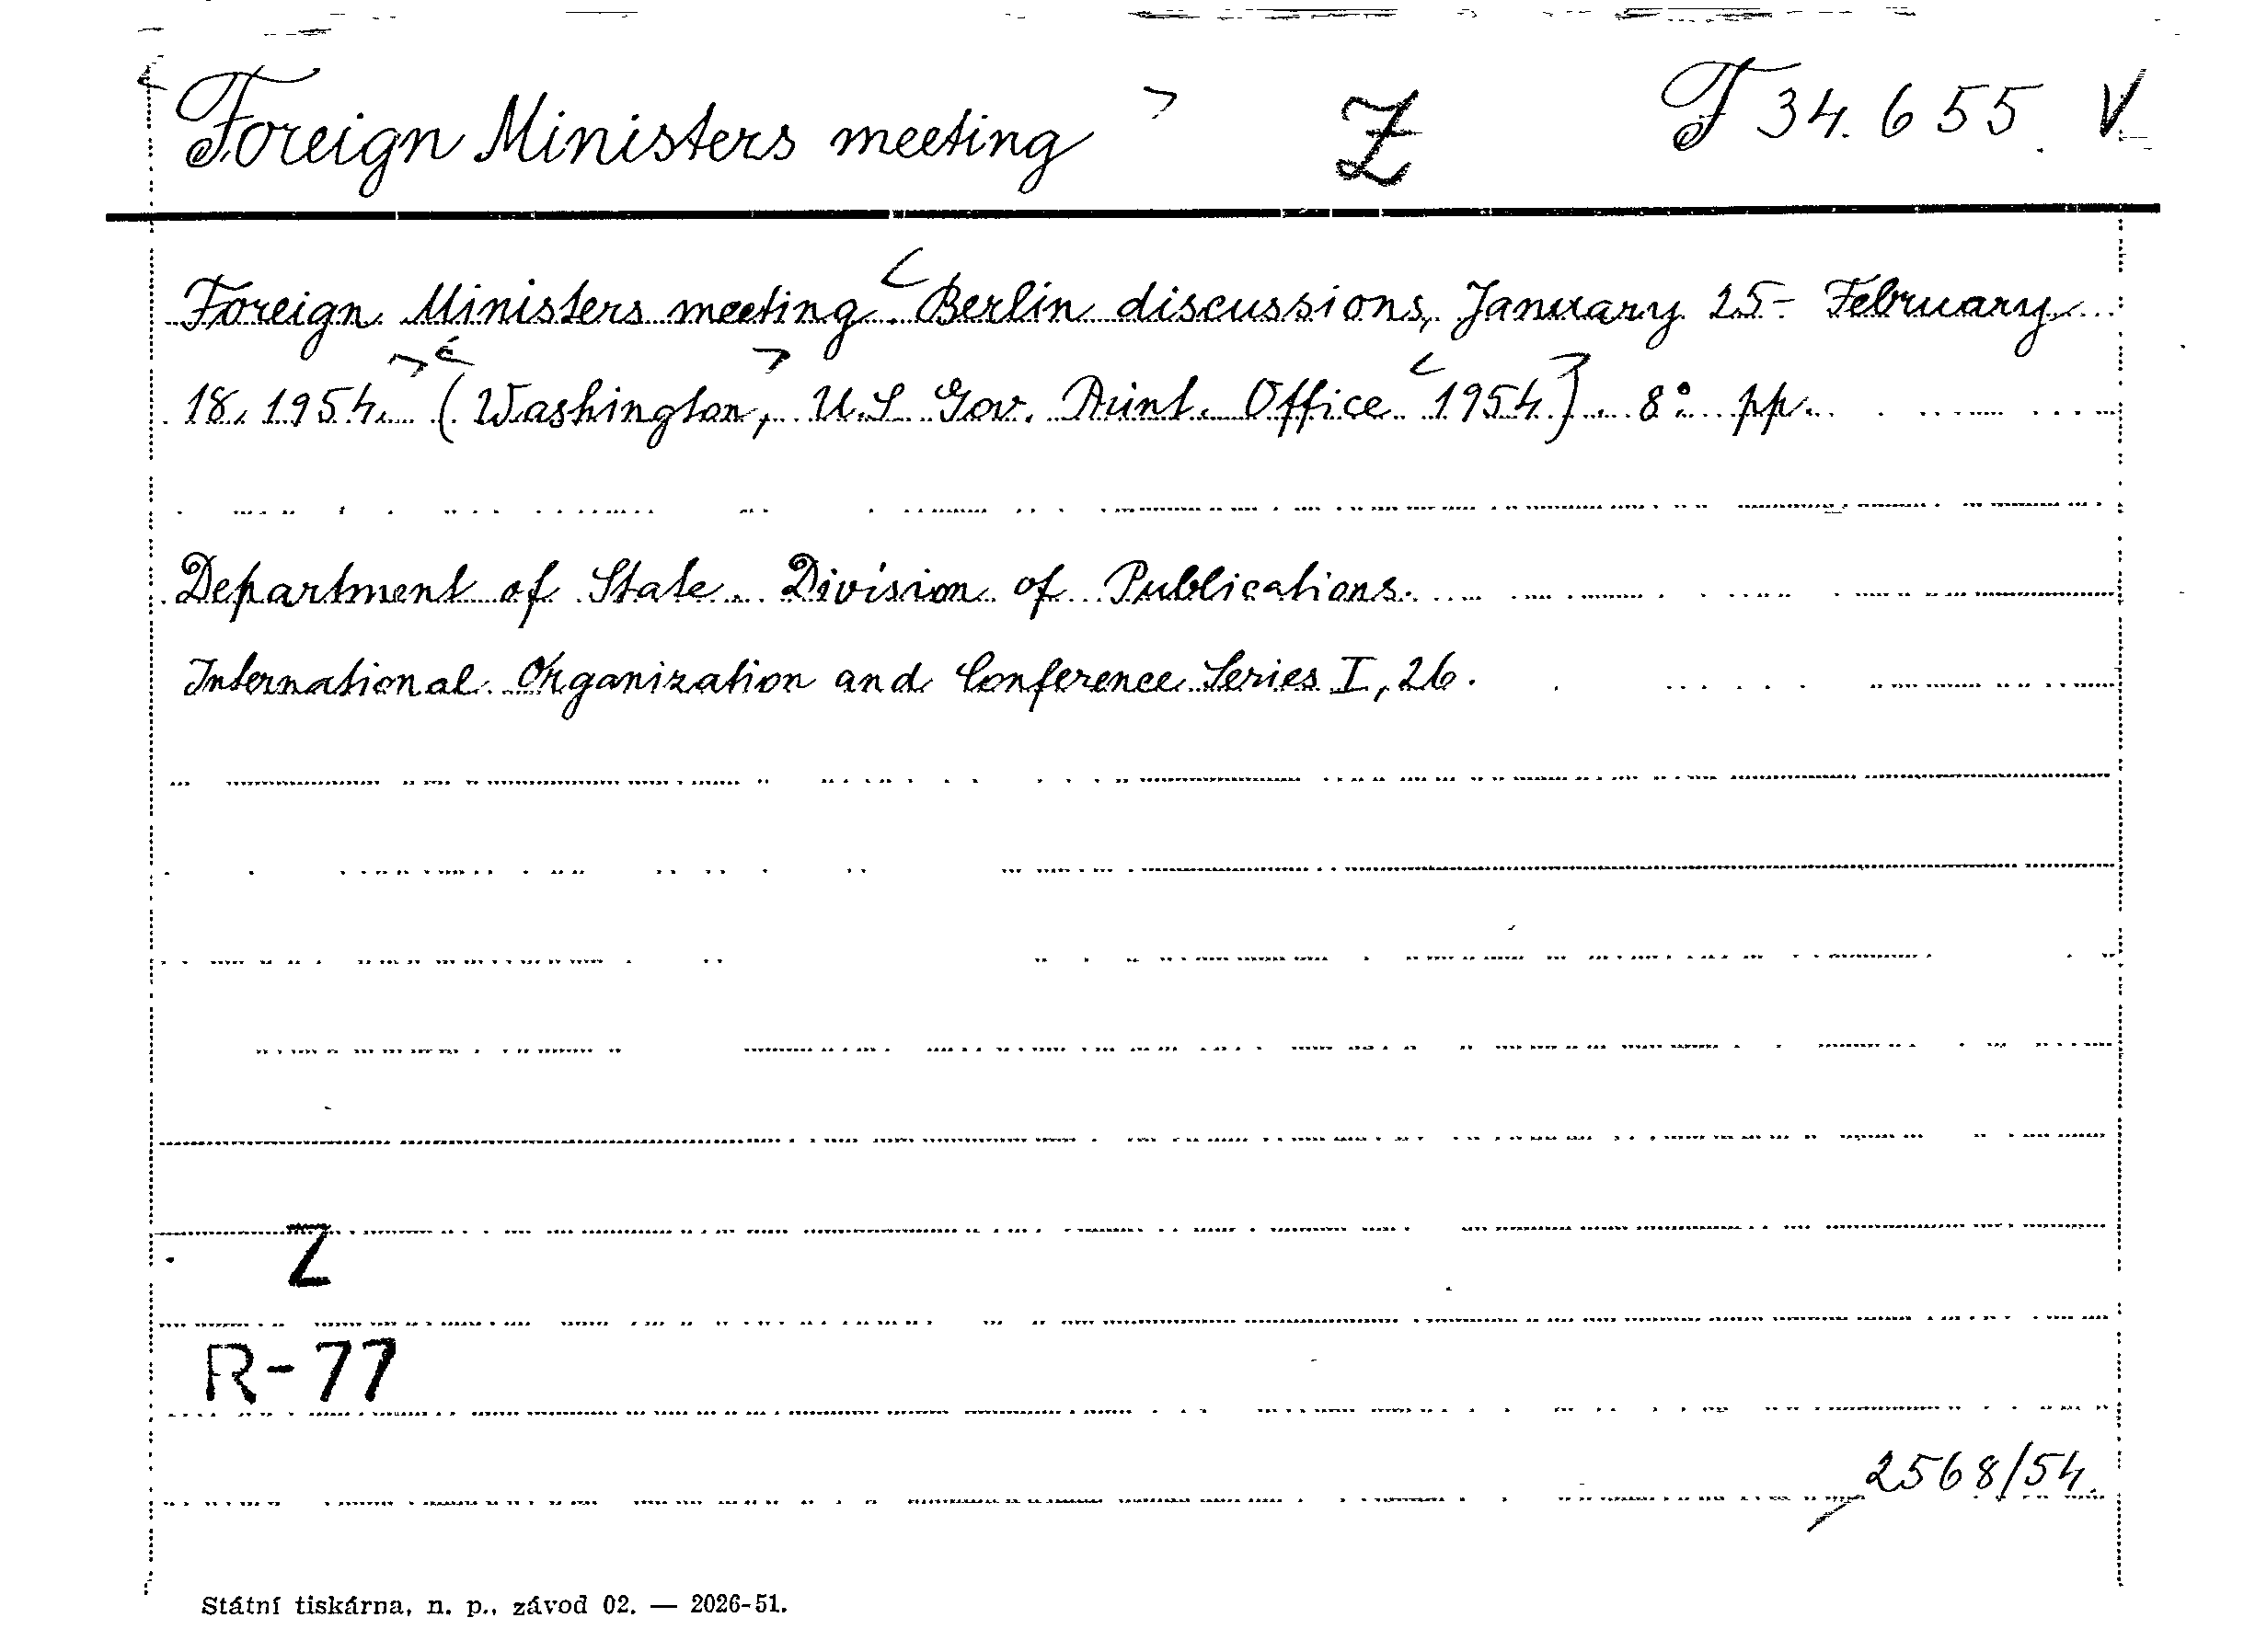 Foreign Ministers meeting Z F 34.655. V
Foreign Ministers meeting. Berlin discussions, January 25 - February
18, 1954. (Washington, U.S Gov. Print. Office 1954). 8° pp.
Department of State. Division of Publications.
International Organization and Conference Series I, 26.
Z
R-77
2568/54.
Státní tiskárna, n. p., závod 02. — 2026-51.